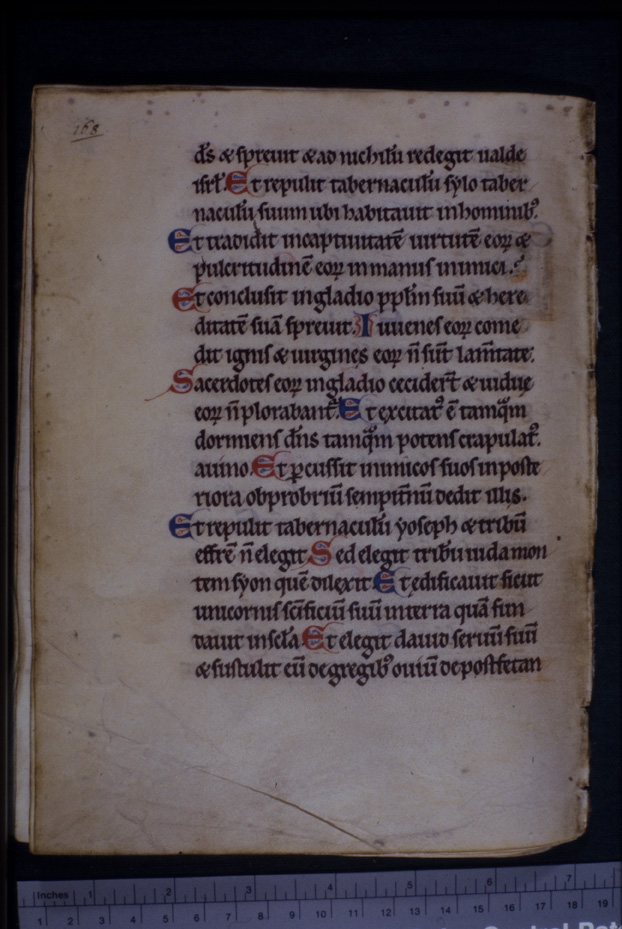 168
dś & spreuit & ad nichilū redegit ualde
isrl̓. Et repulit tabernaculū sẏlo taber
naculū suum ubi habitauit in hominibꝰ.
Et tradidit incaptiuitatē uirtutē eoꝝ &
pulcritudinē eoꝝ in manus inimici.
Et conclusit ingladio pplm̄ suū & here
ditatē suā spreuit. Iuuenes eoꝝ come
dit ignis & uirgines eoꝝ n̄ sūt lam̄tate.
Sacerdotes eoꝝ ingladio cecider̄t & uidue
eoꝝ n̄ plorabant᷑. Et excitatꝰ ē tamqm̄
dormiens dn̄s tamqm̄ potens crapulatꝰ.
auino. Et ꝑcussit inimicos suos in poste
riora obprobriū sempit̄nū dedit illis.
Et repulit tabernaculū ẏoseph & tribū
effrē n̄ elegit Sed elegit tribū iuda mon
tem sẏon quē dilexit Et edificauit sicut
unicornis sc̄ificiū suū interra quā fun
dauit insclā Et elegit dauid seruū suū
& sustulit eū de gregibꝰ ouiū de postfetan
Inches 1 2 3 4 5 6 7
1 2 3 4 5 6 7 8 9 10 11 12 13 14 15 16 17 18 19